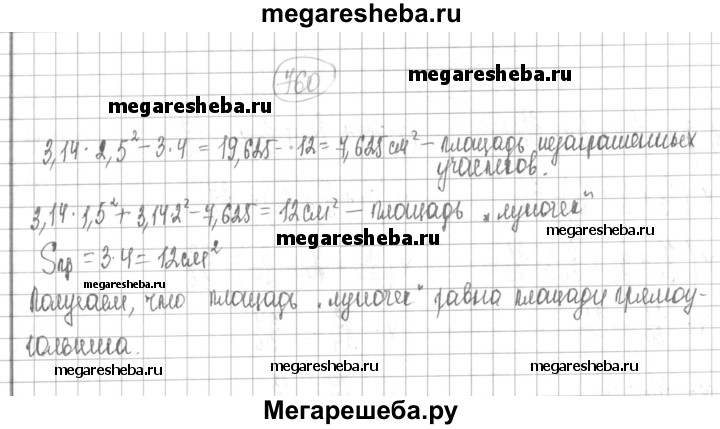 megaresheba.ru
760
megaresheba.ru
megaresheba.ru
3,14 · 2,5² − 3·4 = 19,625 − 12 = 7,625 см² − площадь незакрашенных
участков.
3,14 · 1,5² + 3,14·2² − 7,625 = 12 см² − площадь „луночек“
megaresheba.ru
megaresheba.ru
Sпр = 3·4 = 12 см²
megaresheba.ru
Получаем, что площадь „луночек“ равна площади прямоу-
гольника.
megaresheba.ru megaresheba.ru megaresheba.ru
Мегарешеба.ру